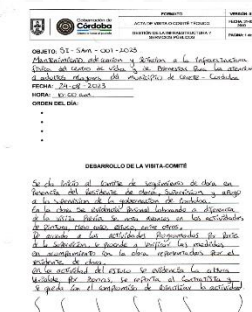 Gobernación de
Córdoba
FORMATO
ACTA DE VISITA O COMITÉ TÉCNICO
GESTIÓN DE LA INFRAESTRUCTURA Y
SERVICIOS PÚBLICOS
OBJETO: SI-SAM-001-2023
Mantenimiento adecuacion y a la Infraestructura
fisica del centro de vida y de Bienestar para la atencion
a adultos mayores del municipio de Cereté - Cordoba
FECHA: 24-08-2023
HORA: 10:00 am.
ORDEN DEL DÍA:
DESARROLLO DE LA VISITA-COMITÉ
Se da Inicio al comite de seguimiento de obra en
Presencia del Residente de obra, Supervision y apoyo
a la Supervision de la gobernacion de Cordoba.
En la obra Se evidencia Personal laborando a diferencia
de la visita Previa. Se avances en las actividades
de Pintura, estuco, entre otros.
a las actividades Programadas Por Parte
de la Supervision, se procede a verificar las medidas
en acompañamiento en la obra por el
residente de obra.
En la actividad del estuco se evidencia la altura
Variable por zonas, se reporta al Contratista y
se queda con el compromiso de la actividad